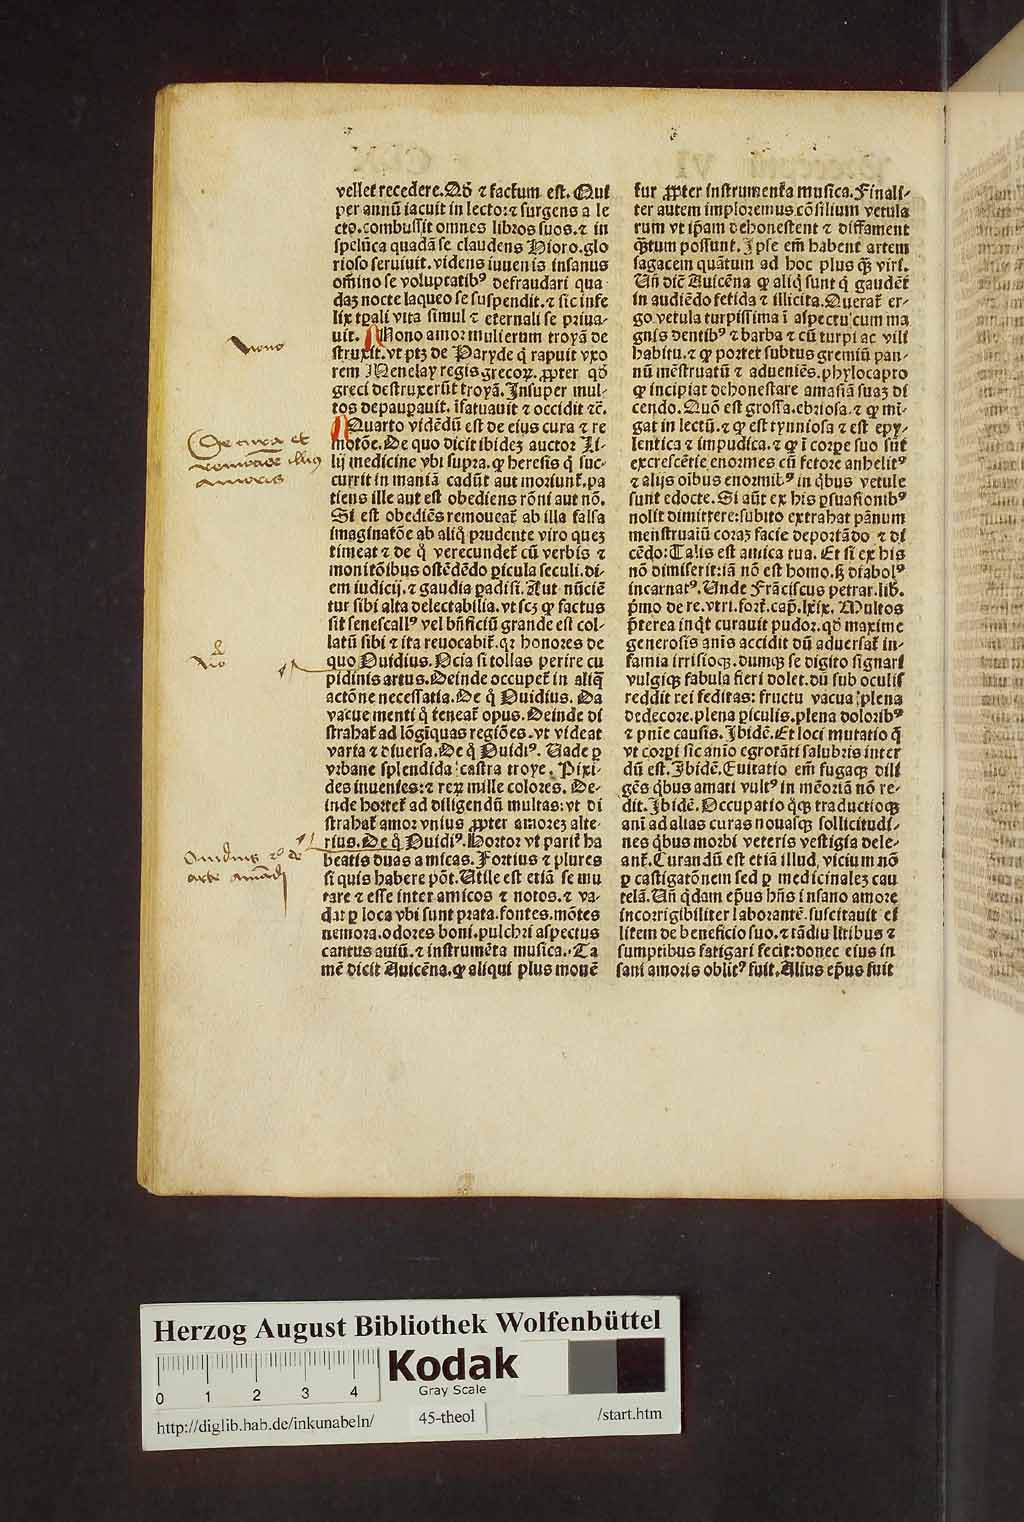 vellet recedere. Qḋ ⁊ factum est. Qui
per annū iacuit in lecto:⁊ surgens a le
cto. combussit omnes libros suos. ⁊ in
spelūca quadā se claudens Hioro. glo
rioso seruiuit. videns iuuenis insanus
om̄ino se voluptatibꝰ defraudari qua
daʒ nocte laqueo se suspendit. ⁊ sic infe
lix tp̄ali vita simul ⁊ eternali se priua-
uit. Nono amor mulierum troyā de
struxit. vt ptʒ de Paryde q̇ rapuit vxo
rem Menelay regis grecoꝝ. ꝓpter qḋ
greci destruxerūt troyā. Insuper mul-
tos depauꝑauit. īfatuauit ⁊ occidit ⁊c̄.
Quarto vidēdū est de eius cura ⁊ re
motōe. De quo dicit ibideʒ auctor Li-
lij medicine vbi supra. ꝙ heresis q̇ suc-
currit in maniā cadūt aut moriunt̄. pa
tiens ille aut est obediens rōni aut nō.
Si est obediēs remoueat̄ ab illa falsa
imaginatōe ab aliq̇ prudente viro queʒ
timeat ⁊ de q̇ verecundet̄ cū verbis ⁊
monitōibus ostēdēdo ꝑicula seculi. di-
em iudicij. ⁊ gaudia ꝑadisi. Aut nūciē
tur sibi alta delectabilia. vt scʒ ꝙ factus
sit senescallꝰ vel bn̄ficiū grande est col-
latū sibi ⁊ ita reuocabit̄. qꝛ honores de
quo Ouidius. Ocia si tollas perire cu
pidinis artus. Deinde occupet̄ in aliq̇
actōne necessatia. De q̇ Ouidius. Da
vacue menti q̇ teneat̄ opus. Deinde di
strahat̄ ad lōgīquas regiōes. vt videat
varia ⁊ diuersa. De q̇ Ouidiꝰ. Vade ꝑ
vrbane splendida castra troye. Pixi-
des inuenies:⁊ reꝝ mille colores. De-
inde hortet̄ ad diligendū multas: vt di
strahat̄ amor vnius ꝓpter amoreʒ alte-
rius. De q̇ Ouidiꝰ. Hortor vt parit̄ ha
beatis duas amicas. Fortius ⁊ plures
si quis habere pōt. Utile est etiā se mu
tare ⁊ esse inter amicos ⁊ notos. ⁊ va-
dat ꝑ loca vbi sunt prata. fontes. mōtes
nemora. odores boni. pulchri aspectus
cantus auiū. ⁊ instrumēta musica. Ta
mē dicit Auicēna. ꝙ aliqui plus mouē
tur ꝓpter instrumenta musica. Finali-
ter autem imploremus cōsilium vetula
rum vt ip̄am dehonestent ⁊ diffament
q̄tum possunt. Ipse em̄ habent artem
sagacem quātum ad hoc plus q̄ʒ viri.
Un̄ dic̄ Auicēna ꝙ aliq̇ sunt q̇ gaudēt
in audiēdo fetida ⁊ illicita. Querat̄ er-
go vetula turpissima ī aspectu cum ma
gnis dentibꝰ ⁊ barba ⁊ cū turpi ac vili
habitu. ⁊ ꝙ portet subtus gremiū pan-
nū mēstruatū ⁊ adueniēs. phylocapto
ꝙ incipiat dehonestare amasiā suaʒ di
cendo. Quō est grossa. ebriosa. ⁊ ꝙ mī-
gat in lectū. ⁊ ꝙ est tynniosa ⁊ est epy-
lentica ⁊ impudica. ⁊ ꝙ ī corꝑe suo sūt
excrescētie enormes cū fetore anhelitꝰ
⁊ alijs oībus enormibꝰ in q̇bus vetule
sunt edocte. Si aūt ex his ꝑsuasionibꝰ
nolit dimittere: subito extrahat pānum
menstruaiū coraʒ facie deportādo ⁊ di
cēdo: Talis est amica tua. Et si ex his
nō dimiserit: iā nō est homo. sꝫ diabolꝰ
incarnatꝰ. Unde Frāciscus petrar. lib.
p̄mo de re. vtri. fort̄. cap̄. lxix. Multos
p̄terea inq̇t curauit pudor. qḋ maxime
generosis anīs accidit dū aduersat̄ in-
famia irrisioqꝫ. dumqꝫ se digito signari
vulgiqꝫ fabula fieri dolet. dū sub oculis
reddit rei feditas: fructu vacua: plena
dedecore. plena ꝑiculis. plena doloribꝰ
⁊ pn̄ie causis. Ibidē. Et loci mutatio q̇
vt corꝑi sic anīo egrotāti salubris inter
dū est. Ibidē. Euitatio em̄ fugaqꝫ dili
gēs q̇bus amati vultꝰ in mēoriā nō re-
dit. Ibidē. Occupatio q̇qꝫ traductioqꝫ
anī ad alias curas nouasqꝫ sollicitudi-
nes q̇bus morbi veteris vestigia dele-
ant̄. Curandū est etiā illud, vicium nō
ꝑ castigatōnem sed ꝑ medicinaleʒ cau
telā. Un̄ q̇dam ep̄us hn̄s insano amore
incorrigibiliter laborantē. suscitauit ei
litem de beneficio suo. ⁊ tādiu litibus ⁊
sumptibus fatigari fecit: donec eius in
sani amoris oblitꝰ fuit. Alius ep̄us fuit
Nono
De cura et
remotione illius
amoris
Ouidius
arte amādi
Herzog August Bibliothek Wolfenbüttel
0 1 2 3 4
Kodak
Gray Scale
http://diglib.hab.de/inkunabeln/
45-theol
/start.htm